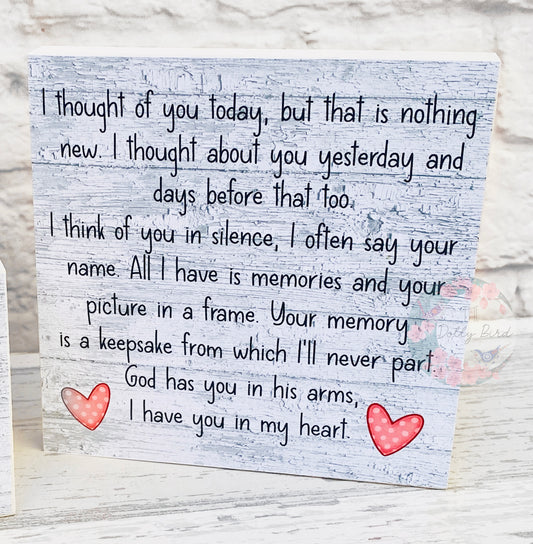 I thought of you today, but that is nothing
new. I thought about you yesterday and
days before that too.
I think of you in silence, I often say your
name. All I have is memories and your
picture in a frame. Your memory
is a keepsake from which I'll never part.
God has you in his arms,
I have you in my heart.
Dotty Bird